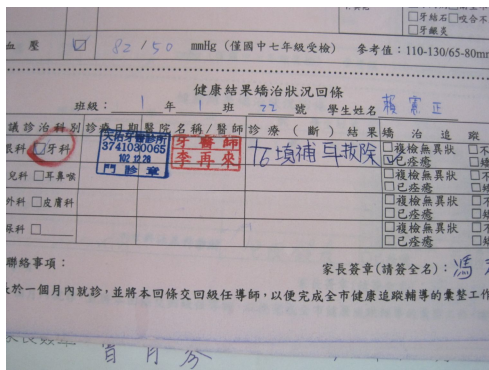 □牙結石□咬合不
□牙齦炎
血 壓 ☑ 82/50 mmHg (僅國中七年級受檢) 參考值：110-130/65-80mm
健康結果矯治狀況回條
班級： 1 年 1 班 22 號 學生姓名 賴憲正
議診治科別 診療日期 醫院名稱/醫師 診療(斷)結果 矯治追蹤
眼科 □牙科 天佑牙醫診所 3741030065 102.12.28 門診章 牙醫師 李再來 已填補 拔除 □複檢無異狀 □不
☑已痊癒 □矯
兒科 □耳鼻喉 □複檢無異狀 □不
□已痊癒 □矯
外科 □皮膚科 □複檢無異狀 □不
□已痊癒 □矯
尿科 □ □複檢無異狀 □不
□已痊癒 □矯
聯絡事項： 家長簽章(請簽全名)： 馮
於一個月內就診，並將本回條交回級任導師，以便完成全市健康追蹤輔導的彙整工作